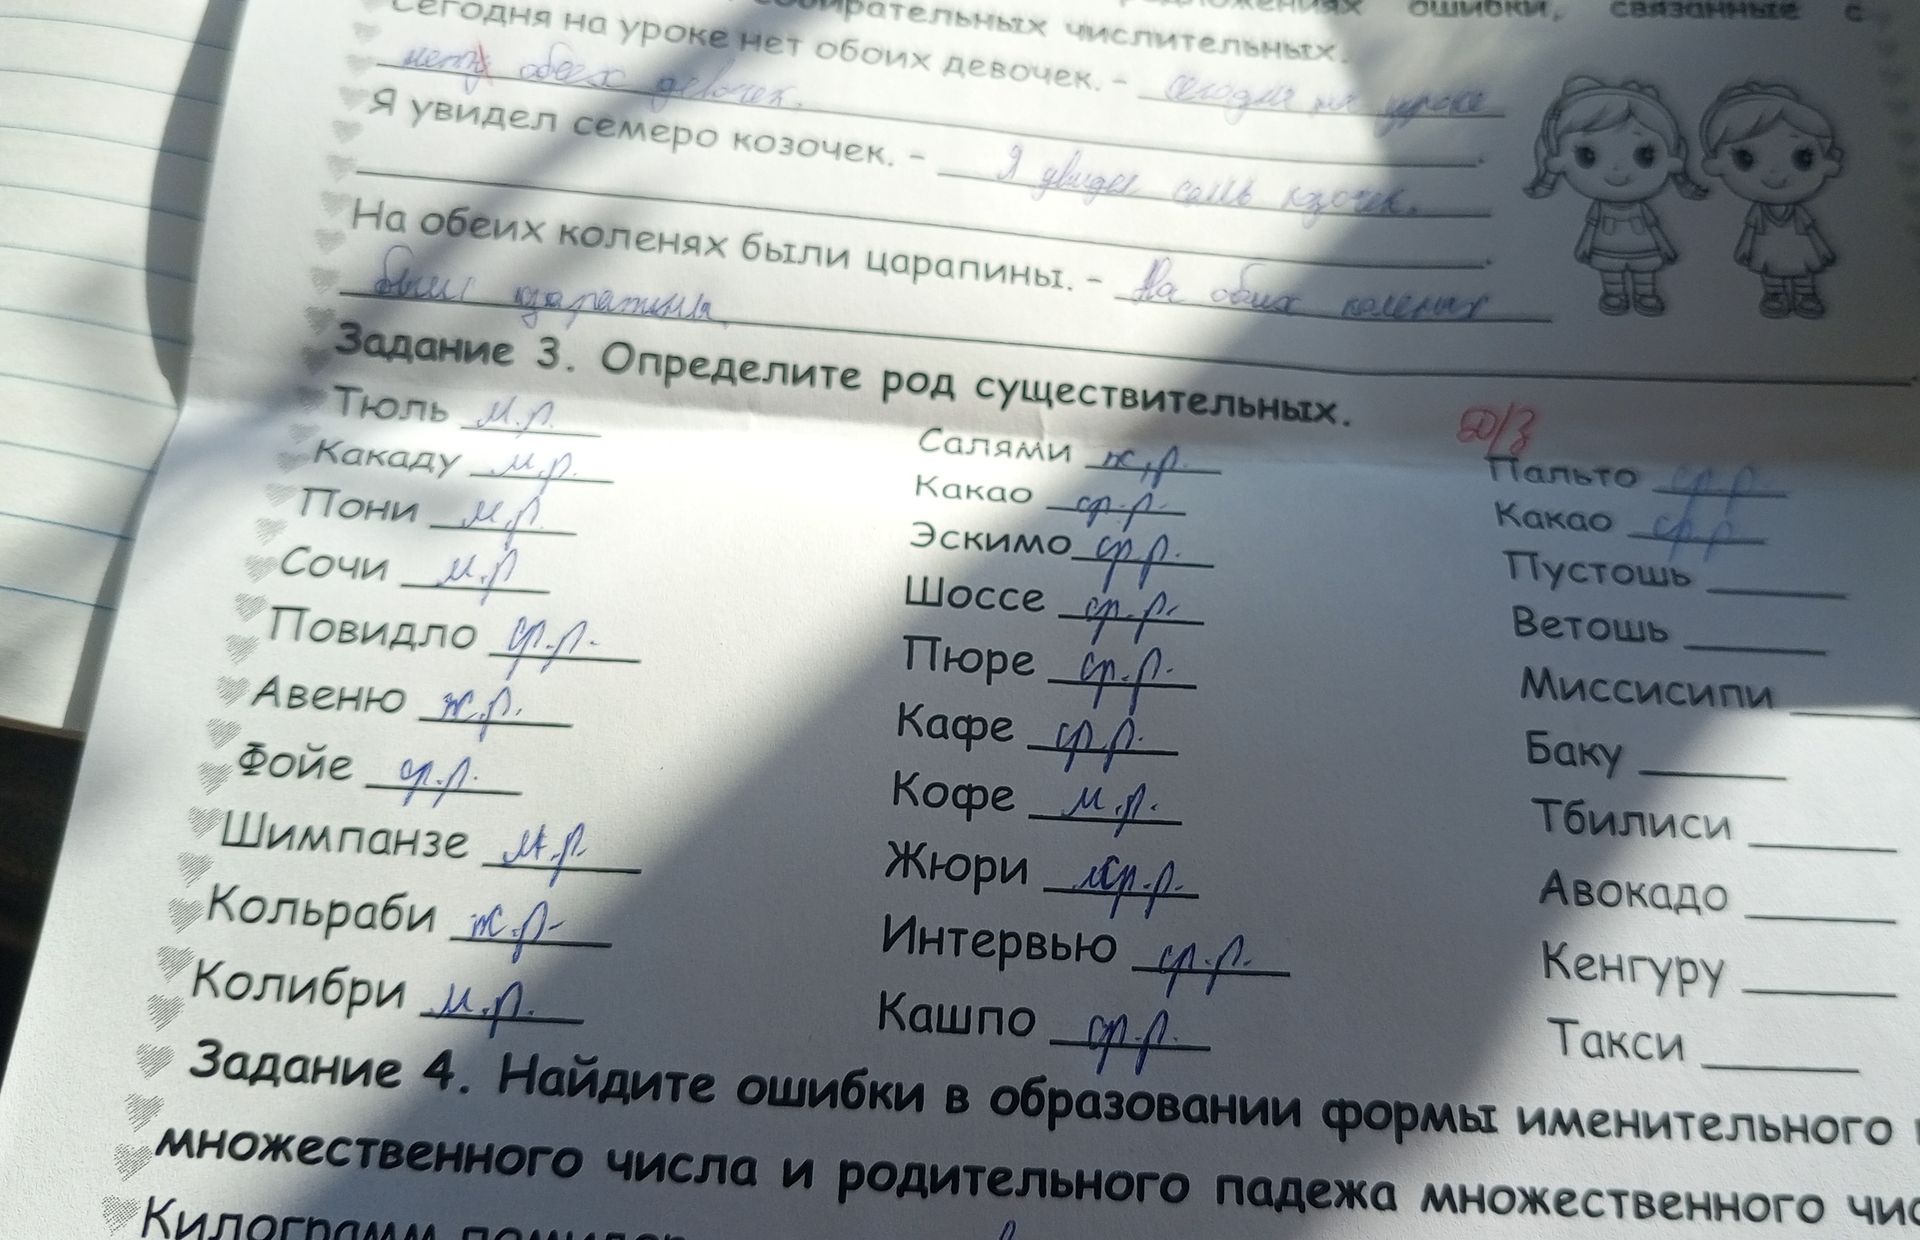 ошибки, связанные с
собирательных числительных.
Сегодня на уроке нет обоих девочек. – Сегодня на уроке
нету обеих девочек.
Я увидел семеро козочек. – Я увидел семь козочек.
На обеих коленях были царапины. – На обоих коленях
были царапины.
Задание 3. Определите род существительных.
Д/З
Тюль м.р. Салями ж.р. Пальто ср.р.
Какаду м.р. Какао ср.р. Какао ср.р.
Пони м.р. Эскимо ср.р. Пустошь
Сочи м.р. Шоссе ср.р. Ветошь
Повидло ср.р. Пюре ср.р. Миссисипи
Авеню ж.р. Кафе ср.р. Баку
Фойе ср.р. Кофе м.р. Тбилиси
Шимпанзе м.р. Жюри ср.р. Авокадо
Кольраби ж.р. Интервью ср.р. Кенгуру
Колибри м.р. Кашпо ср.р. Такси
Задание 4. Найдите ошибки в образовании формы именительного
множественного числа и родительного падежа множественного чис
Килограмм помидор